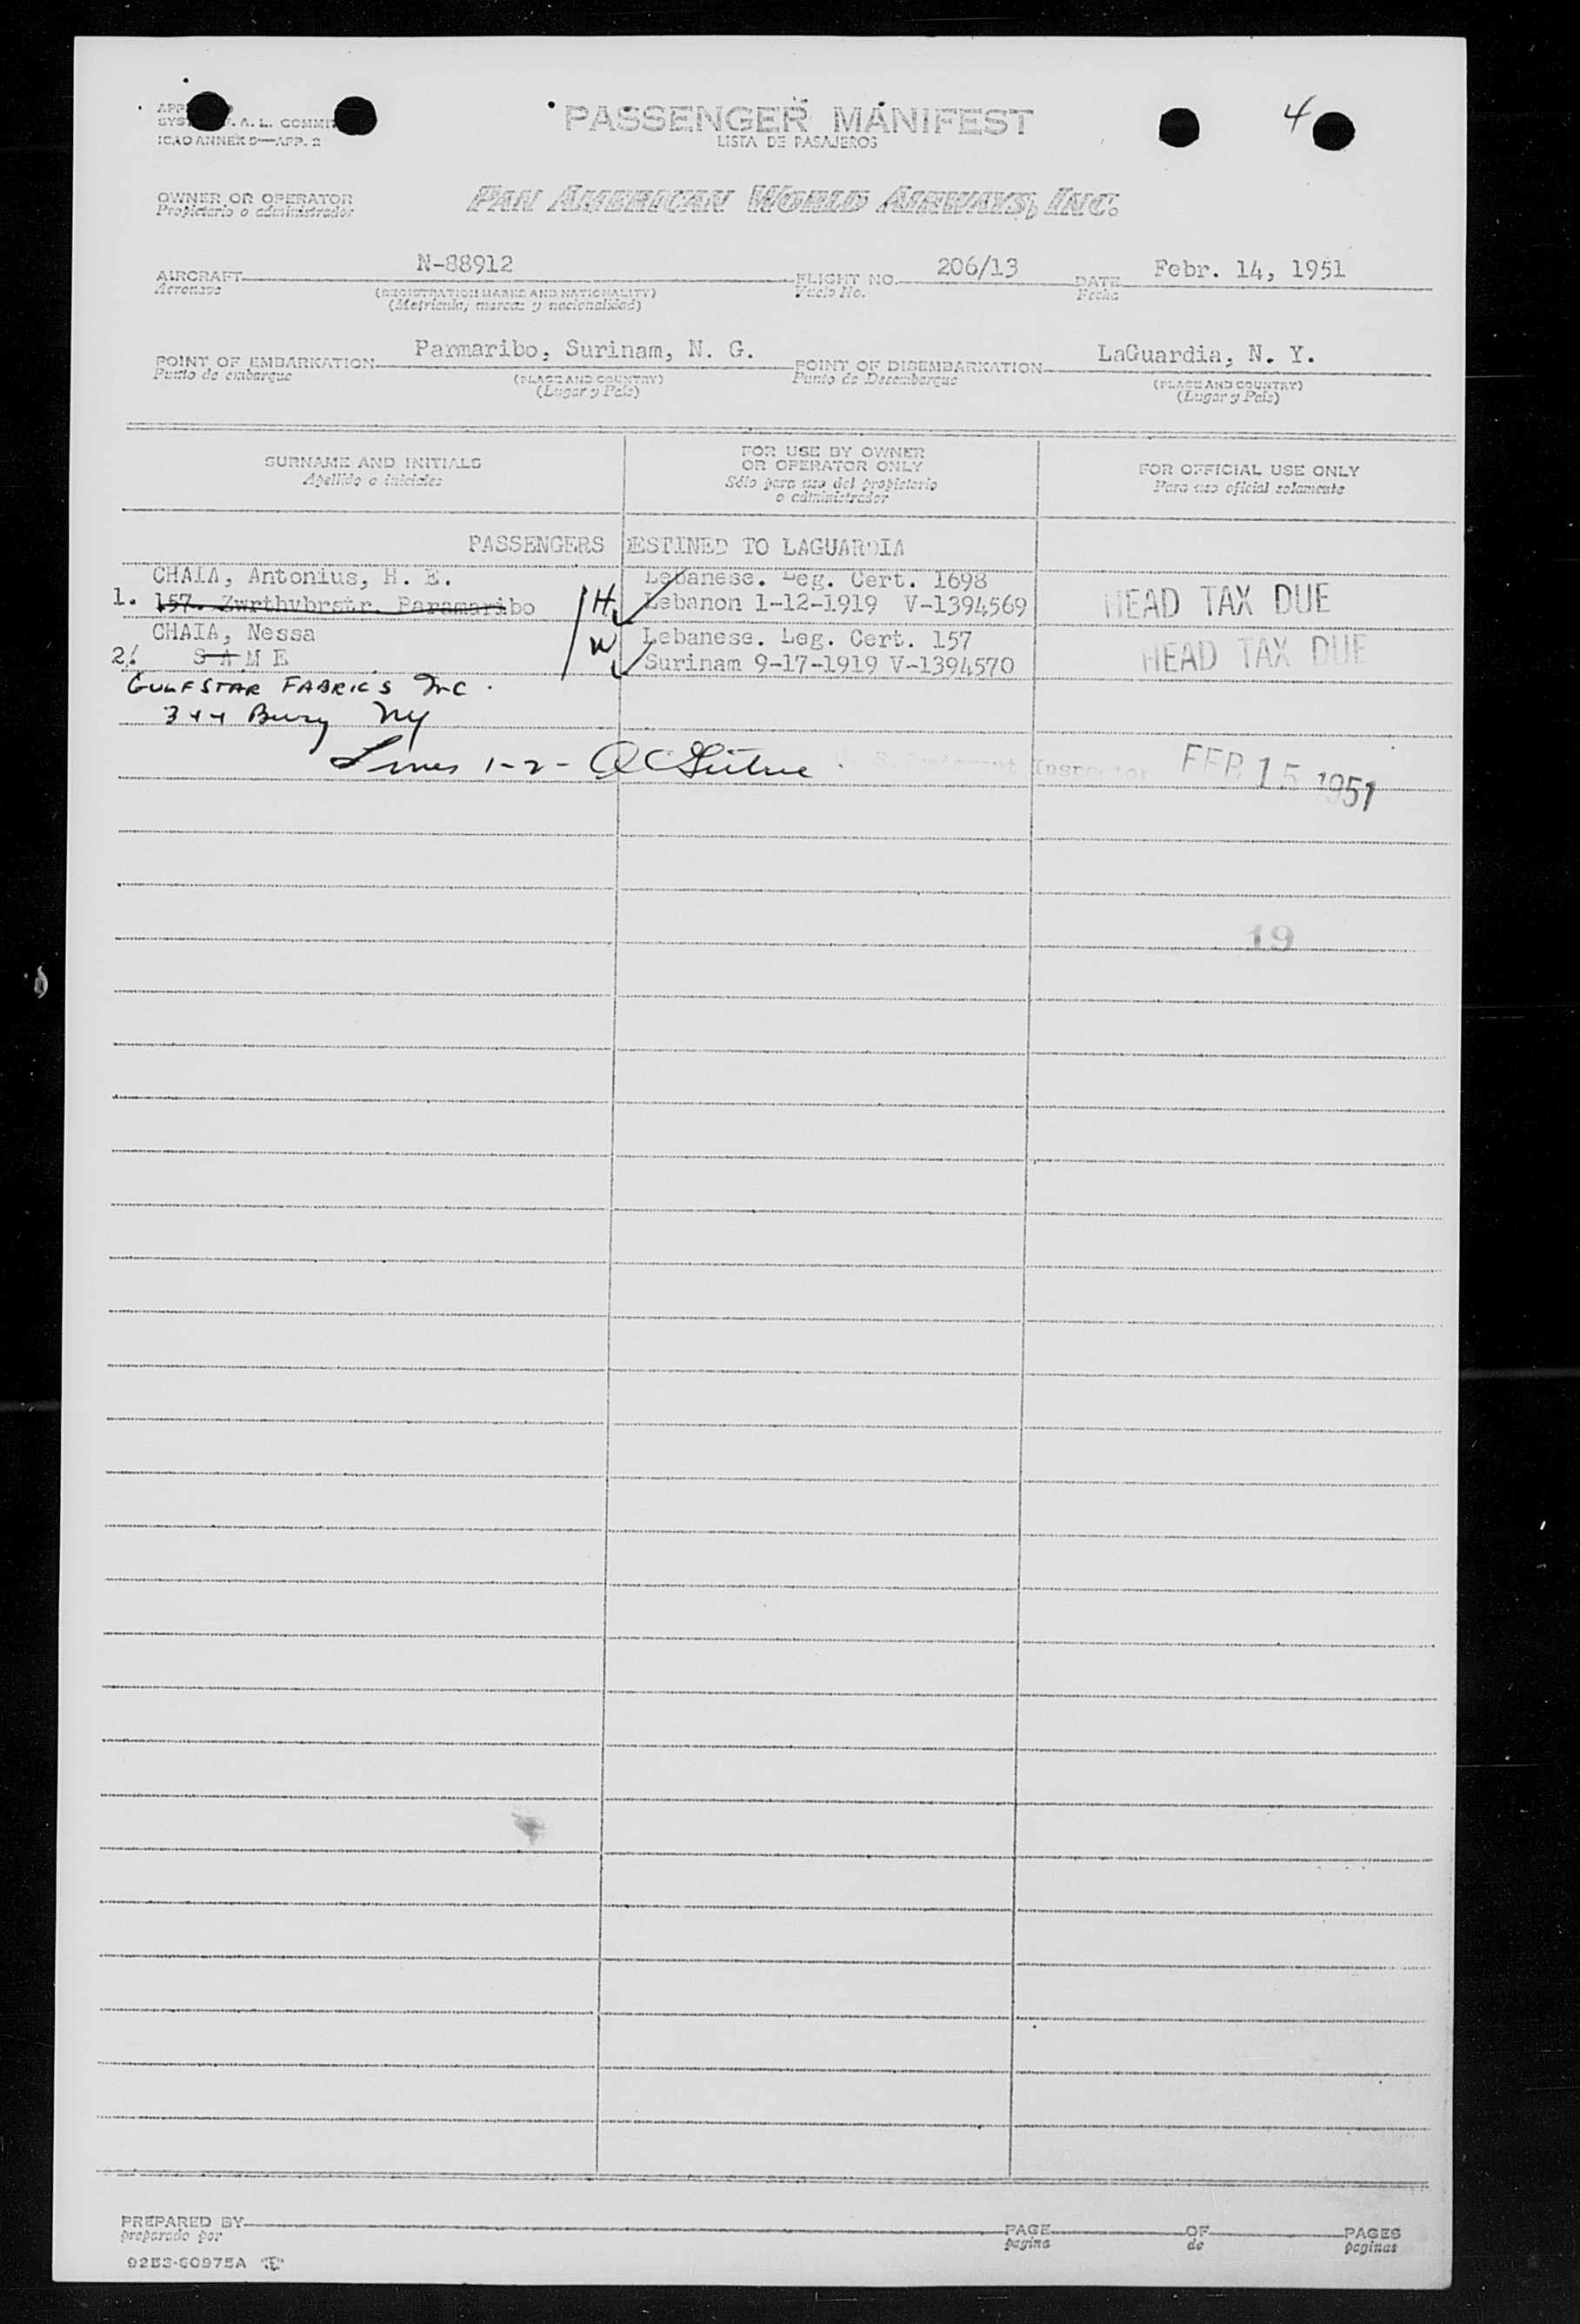 4
PASSENGER MANIFEST
LISTA DE PASAJEROS
F. A. L. COMMI
ICAO ANNEX 9—APP. 2
OWNER OR OPERATOR
Propietario o administrador
PAN AMERICAN WORLD AIRWAYS, INC.
AIRCRAFT N-88912 FLIGHT NO. 206/13 DATE Febr. 14, 1951
Aeronave (REGISTRATION MARKS AND NATIONALITY) Vuelo No. Fecha
(Matrícula, marcas y nacionalidad)
POINT OF EMBARKATION Parmaribo, Surinam, N. G. POINT OF DISEMBARKATION LaGuardia, N. Y.
Punto de embarque (PLACE AND COUNTRY) Punto de Desembarque (PLACE AND COUNTRY)
(Lugar y País) (Lugar y País)
SURNAME AND INITIALS
Apellido e iniciales
FOR USE BY OWNER
OR OPERATOR ONLY
Sólo para uso del propietario
o administrador
FOR OFFICIAL USE ONLY
Para uso oficial solamente
PASSENGERS DESTINED TO LAGUARDIA
CHAIA, Antonius, H. E. Lebanese. Leg. Cert. 1698
1. 157. Zwrthvbrstr. Paramaribo H Lebanon 1-12-1919 V-1394569 HEAD TAX DUE
CHAIA, Nessa Lebanese. Leg. Cert. 157
2. S A M E W Surinam 9-17-1919 V-1394570 HEAD TAX DUE
GULFSTAR FABRICS Inc.
344 Bwy NY
Lines 1-2- Inspector FEB 15 1951
19
PREPARED BY PAGE OF PAGES
preparado por página de páginas